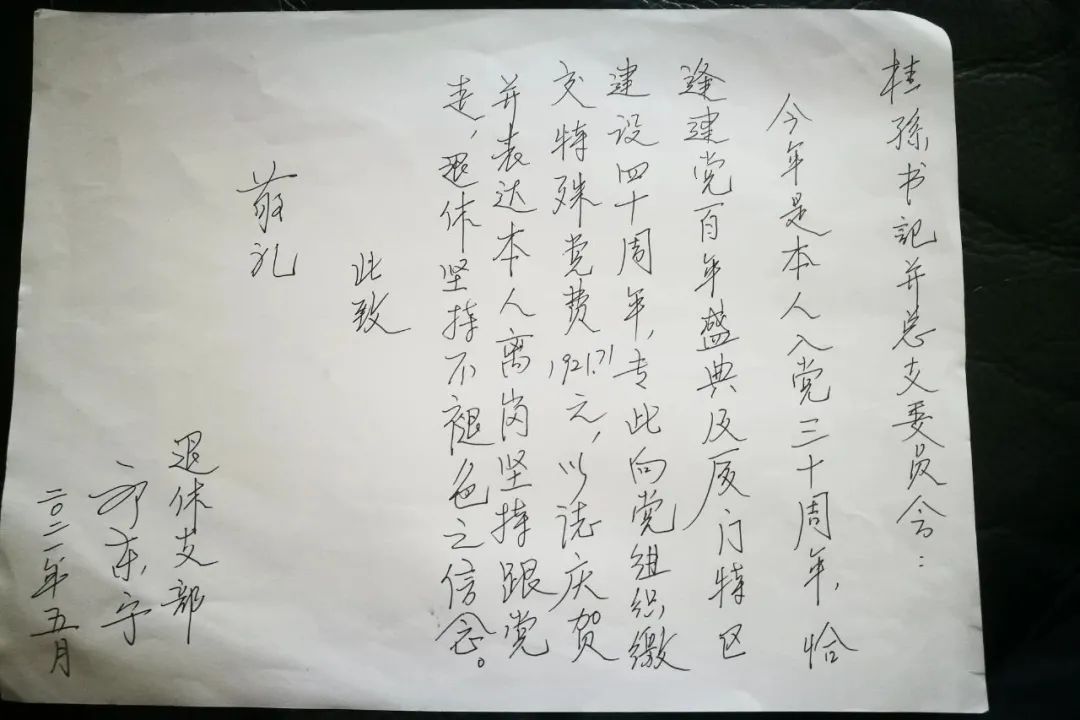 桂孙书记并总支委员会：
今年是本人入党三十周年，恰
逢建党百年盛典及厦门特区
建设四十周年，专此向党组织缴
交特殊党费1921.71元，以誌庆贺
并表达本人离岗坚持跟党
走，退休坚持不褪色之信念。
此致
敬礼
退休支部
二〇二一年五月